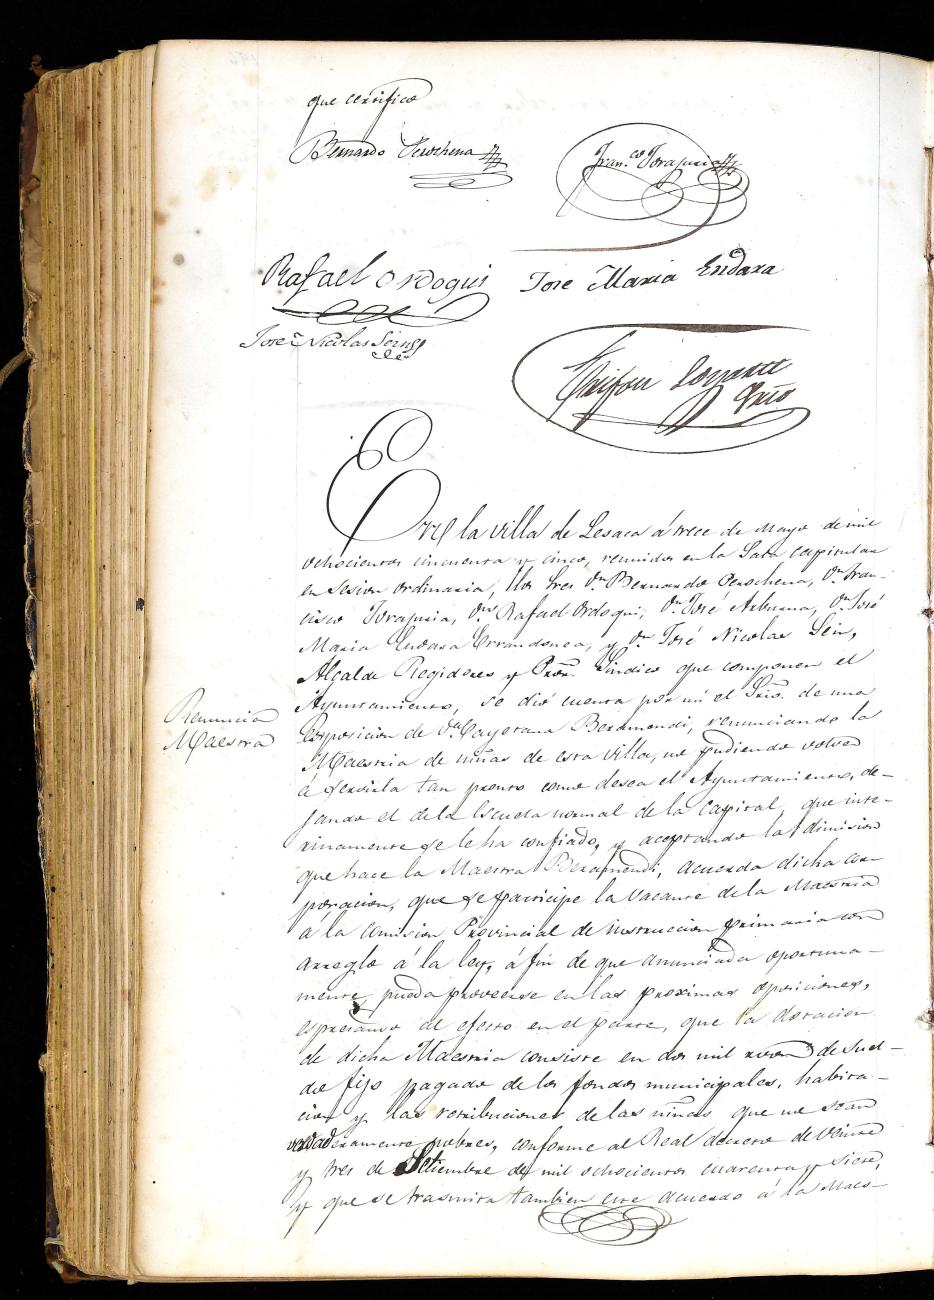 que certifico
Bernardo Perochena
Fran.co Torapuria
Rafael Ordoqui
Jose Maria Endara
José Nicolas Sein
Srio
En la villa de Lesaca á trece de Mayo de mil
ochocientos cincuenta y cinco, reunidos en la Sala capitular
en sesion ordinaria, los Sres D.n Bernardo Perochena, D.n Fran-
cisco Torapuria, D.n Rafael Ordoqui, D.n José Arburua, D.n José
Maria Endara Errandonea, y D.n José Nicolas Sein,
Alcalde Regidores y Pror. Sindico que componen el
Ayuntamiento, se dió cuenta por mi el Srio. de una
Renuncia
Maestra
esposicion de D.a Cayetana Beramendi, renunciando la
Maestria de niñas de esta villa, no pudiendo volver
á servirla tan pronto como desea el Ayuntamiento, de-
jando el de la Escuela normal de la capital, que inte-
rinamente se le ha confiado, y aceptando la dimision
que hace la Maestra Beramendi, acuerda dicha cor-
poracion, que se participe la vacante de la Maestria
á la comision Provincial de instruccion primaria con
arreglo á la ley, á fin de que anunciada oportuna-
mente, pueda proveerse en las proximas oposiciones,
espresando al efecto en el parte, que la dotacion
de dicha Maestria consiste en dos mil de suel-
do fijo pagado de los fondos municipales, habita-
cion y las retribuciones de las niñas que no sean
verdaderamente pobres, conforme al Real decreto de veinte
y tres de Setiembre de mil ochocientos cuarenta y siete,
y que se trasmita tambien este acuerdo á la Maes-